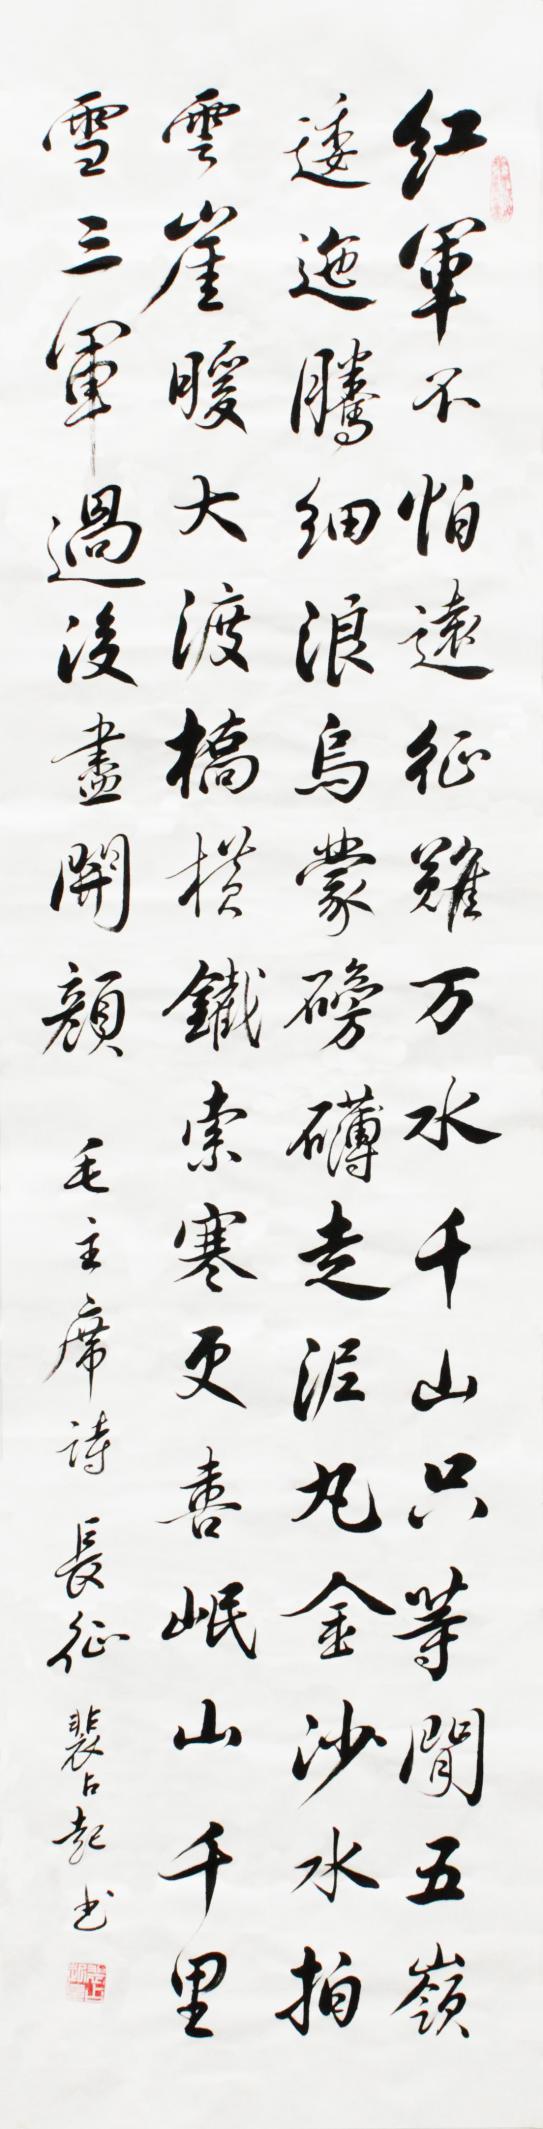 红軍不怕遠征難万水千山只等閒五嶺
逶迤騰细浪烏蒙磅礴走泥丸金沙水拍
雲崖暖大渡橋横鐵索寒更喜岷山千里
雪三軍過後盡開顔
毛主席詩 長征 裴占起书